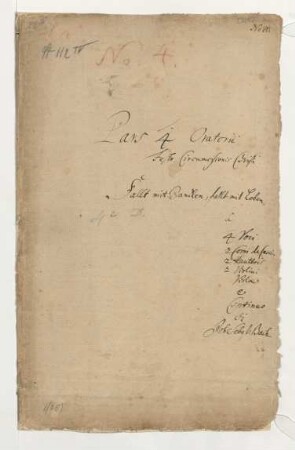 No. 4.
Pars 4 Oratorii
Festo Circumcisionis Christi
Fallt mit Danken, fallt mit Loben
à
4 Voci
2 Corni da Caccia
2 Hautbois
2 Violini
Viola
e
Continuo
di
Joh. Seb. Bach